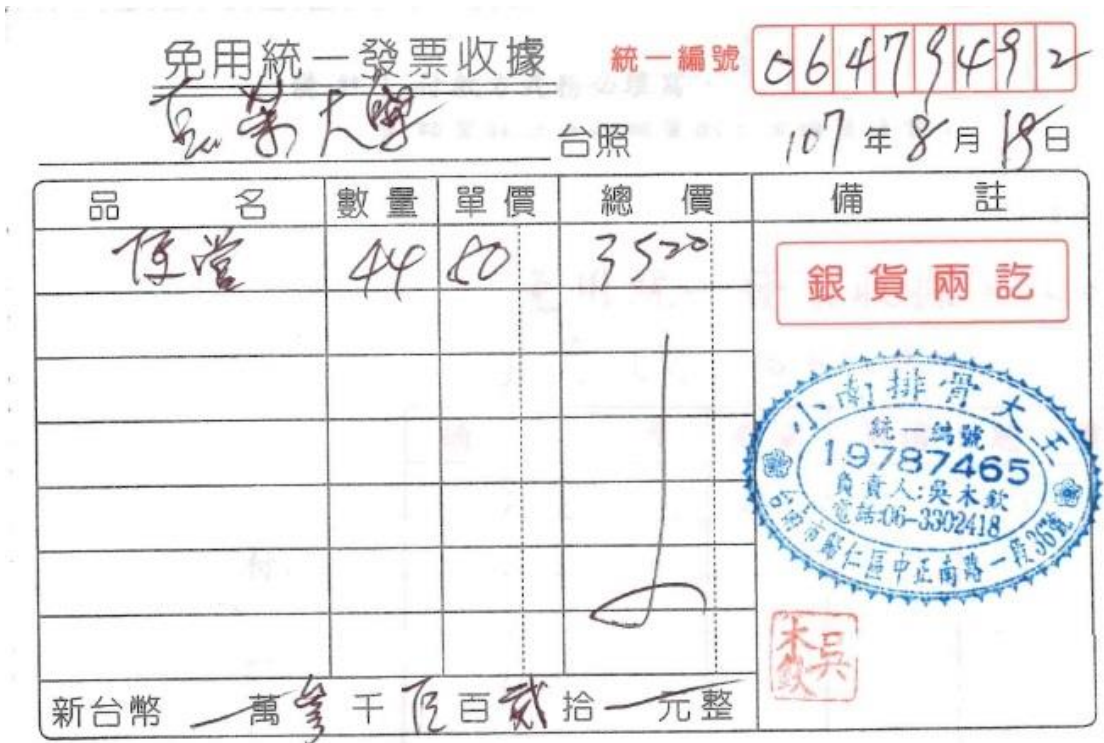 免用統一發票收據
統一編號 06479492
長榮大學 台照
107年8月18日
品名 數量 單價 總價 備註
便當 44 80 3520
銀貨兩訖
小南排骨大王
統一編號
19787465
負責人:吳木欽
電話:06-3302418
台南市歸仁區中正南路一段36號
吳木欽
新台幣 一萬參千伍百貳拾一元整